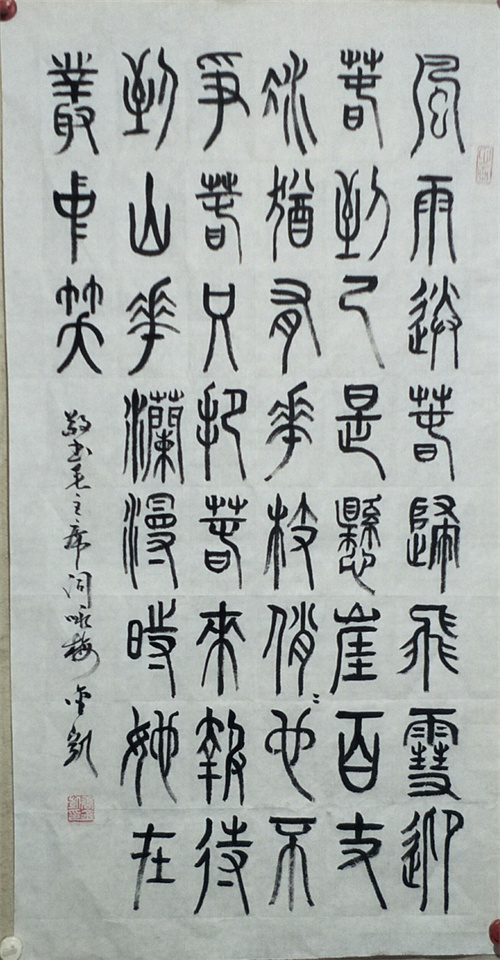 風雨送春歸飛雪迎
春到已是懸崖百丈
冰猶有花枝俏〻也不
爭春只把春來報待
到山花灡漫時她在
叢中笑
敬书毛主席词咏梅